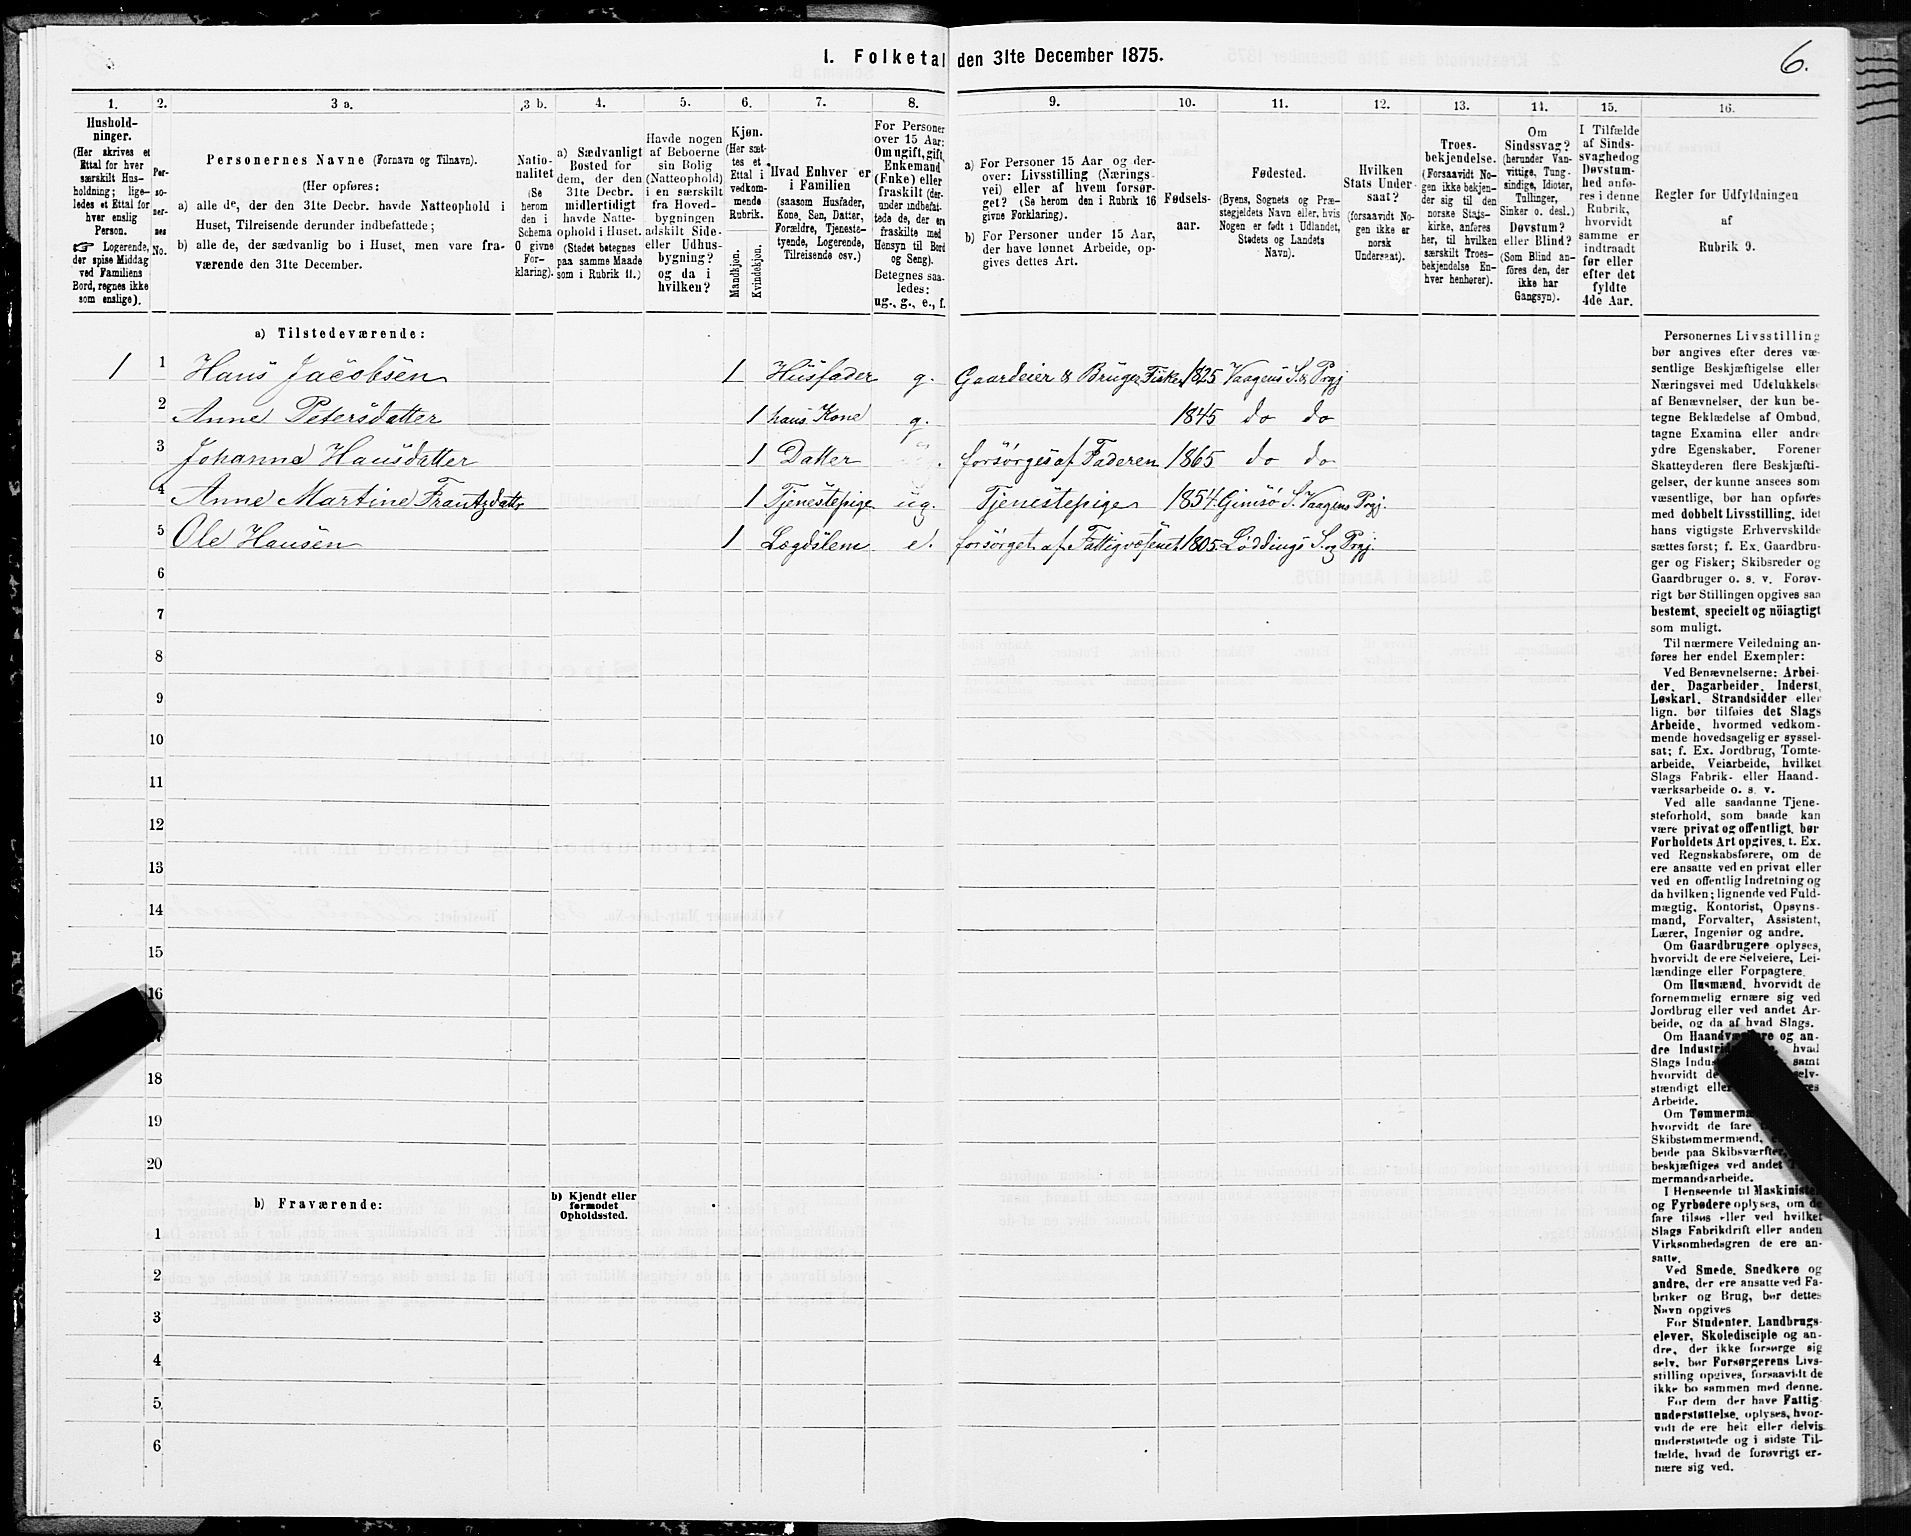 I. Folketal den 31te December 1875.
6.
1.
Husholdninger.
(Her skrives et
Ettal for hver
særskilt Husholdning; ligeledes
et Ettal for
hver enslig
Person.
☞ Logerende,
der spise Middag
ved Familiens
Bord, regnes ikke
som enslige).
2.
Personernes
No.
3 a.
Personernes Navne (Fornavn og Tilnavn).
(Her opføres:
a) alle de, der den 31te Decbr. havde Natteophold i
Huset, Tilreisende derunder indbefattede;
b) alle de, der sædvanlig bo i Huset, men vare fra-
værende den 31te December.
3 b.
Natio-
nalitet
(Se
herom
den i
Schema
O givne
For-
klaring).
4.
a) Sædvanligt
Bosted for
dem, der den
31te Decbr.
midlertidigt
havde Natte-
ophold i Huset.
(Stedet betegnes
paa samme Maade
som i Rubrik 11.)
5.
Havde nogen
af Beboerne
sin Bolig
(Natteophold)
i en særskilt
fra Hoved-
bygningen
adskilt Side-
eller Udhus-
bygning?
og da i
hvilken?
6.
Kjøn.
(Her sæt-
tes et
Ettal i
vedkom-
mende
Rubrik.
Mandkjøn.
Kvindekjøn.
7.
Hvad Enhver er
i Familien
(saasom Husfader,
Kone, Søn, Datter,
Forældre, Tjeneste-
tyende, Logerende,
Tilreisende osv.)
8.
For Personer
over 15 Aar:
Om ugift, gift,
Enkemand
(Enke) eller
fraskilt (der-
under indbefat-
tede de, der ere
fraskilte med
Hensyn til Bord
og Seng).
Betegnes saa-
ledes:
ug., g., e., f.
9.
a) For Personer 15 Aar og der-
over: Livsstilling (Nærings-
vei) eller af hvem forsør-
get? (Se herom den i Rubrik 16
givne Forklaring).
b) For Personer under 15 Aar,
der have lønnet Arbeide, op-
gives dettes Art.
10.
Fødsels-
aar.
11.
Fødested.
(Byens, Sognets og Præ-
stegjeldets Navn eller, hvis
Nogen er født i Udlandet,
Stedets og Landets
Navn).
12.
Hvilken
Stats Under-
saat?
(forsaavidt No-
gen ikke er
norsk
Undersaat).
13.
Troes-
bekjendelse.
(Forsaavidt No-
gen ikke bekjen-
der sig til den
norske Stats-
kirke, anføres
her, til hvilken
særskilt Troes-
bekjendelse En-
hver henhører).
14.
Om
Sindssvag?
(herunder Van-
vittige, Tung-
sindige, Idioter,
Tullinger,
Sinker o. desl.)
Døvstum?
eller Blind?
(Som Blind an-
føres den, der
ikke har
Gangsyn).
15.
I Tilfælde
af Sinds-
svaghed og
Døvstum-
hed anfø-
res i denne
Rubrik,
hvorvidt
samme er
indtraadt
før eller
efter det
fyldte
4de Aar.
16.
Regler for Udfyldningen
af
Rubrik 9.
a) Tilstedeværende:
1 1 Hans Jacobsen 1 Husfader g. Gaardeier & Bruger Fisker 1825 Vaagens S. & Prgj
2 Anne Petersdatter 1 hans Kone g. 1845 do do
3 Johanna Hansdatter 1 Datter forsørges af Faderen 1865 do do
4 Anne Martine Frantzdatter 1 Tjenestepige ug. Tjenestepige 1854 Gimsø S. Vaagens Prgj.
5 Ole Hansen 1 Lægdslem e. forsørget af Fattigvæsenet 1805. Løddings S. og Prgj.
6
7
8
9
10
11
12
13
14
15
16
18
19
20
b) Fraværende:
b) Kjendt eller
formodet
Opholdssted.
1
2
3
4
5
6
Personernes Livsstilling
bør angives efter deres væ-
sentlige Beskjæftigelse eller
Næringsvei med Udelukkelse
af Benævnelser, der kun be-
tegne Beklædelse af Ombud,
tagne Examina eller andre
ydre Egenskaber. Forener
Skatteyderen flere Beskjæfti-
gelser, der kunne ansees som
væsentlige, bør han opføres
med dobbelt Livsstilling, idet
hans vigtigste Erhvervskilde
sættes først; f. Ex. Gaardbru-
ger og Fisker; Skibsreder og
Gaardbruger o. s. v. Forøv-
rigt bør Stillingen opgives saa
bestemt, specielt og nöiagtigt
som muligt.
Til nærmere Veiledning an-
føres her endel Exempler:
Ved Benævnelserne: Arbei-
der, Dagarbeider, Inderst,
Løskarl, Strandsidder eller
lign. bør tilføies det Slags
Arbeide, hvormed vedkom-
mende hovedsagelig er syssel-
sat; f. Ex. Jordbrug, Tomte-
arbeide, Veiarbeide, hvilket
Slags Fabrik- eller Haand-
værksarbeide o. s. v.
Ved alle saadanne Tjene-
steforhold, som baade kan
være privat og offentligt, bør
Forholdets Art opgives, t. Ex.
ved Regnskabsførere, om de
ere ansatte ved en privat eller
ved en offentlig Indretning og
da hvilken; lignende ved Fuld-
mægtig, Kontorist, Opsyns-
mand, Forvalter, Assistent,
Lærer, Ingeniør og andre.
Om Gaardbrugere oplyses,
hvorvidt de ere Selveiere, Lei-
lændinge eller Forpagtere.
Om Husmænd, hvorvidt de
fornemmelig ernære sig ved
Jordbrug eller ved andet Ar-
beide, og da af hvad Slags.
Om og an-
dre hvad
Slags samt
hvorvidt
stændigt
Arbeide.
Om
hvorvidt de fare
Skibstømmermænd,
beide paa Skibsværfter,
beskjæftiges ved andet
mermandsarbeide.
I Henseende til Maskinister
og Fyrbødere oplyses, om de
fare tilsøs eller ved hvilket
Slags Fabrikdrift eller anden
Virksomhedsgren de ere an-
satte.
Ved Smede, Snedkere og
andre, der ere ansatte ved Fa-
briker og Brug, bør dettes
Navn opgives
For Studenter, Landbrugs-
elever, Skoledisciple og an-
dre, der ikke forsørge sig
selv, bør Forsørgerens Livs-
stilling opgives, forsaavidt de
ikke bo sammen med denne.
For dem der have Fattig-
understøttelse, oplyses, hvor-
vidt de ere helt eller delvis
understøttede og i sidste Til-
fælde, hvad de forøvrigt er-
nære sig ved.